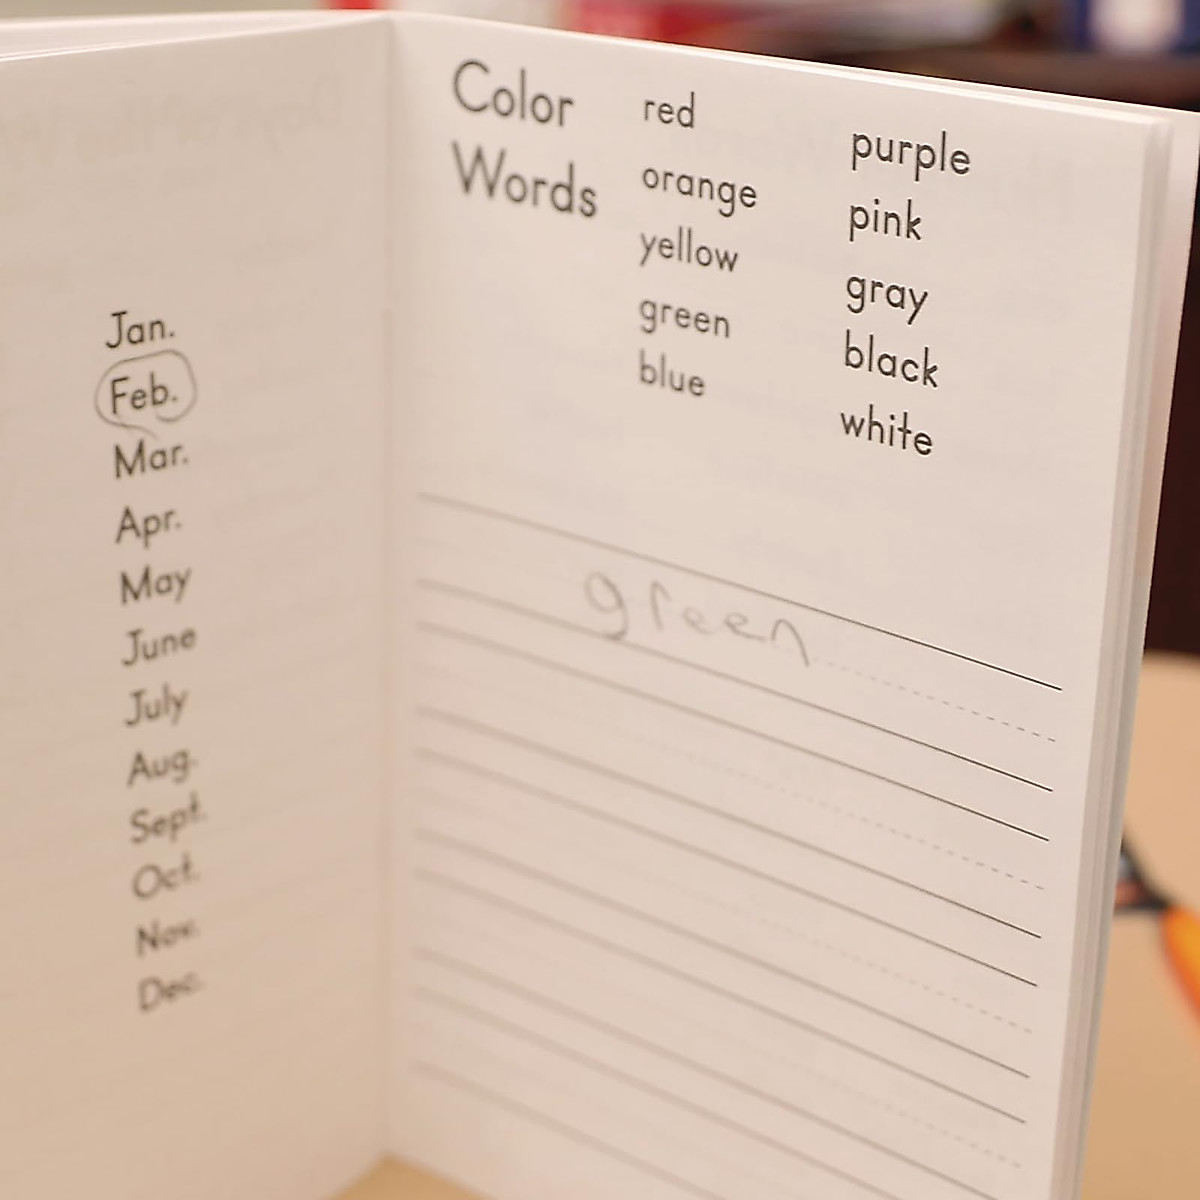 Jan.
Feb.
Mar.
Apr.
May
June
July
Aug.
Sept.
Oct.
Nov.
Dec.
Color
Words
red
orange
yellow
green
blue
purple
pink
gray
black
white
green